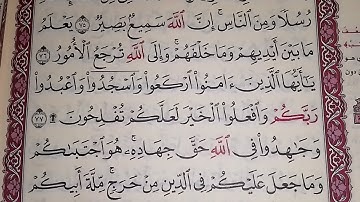 رُسُلًا وَمِنَ ٱلنَّاسِ ۚ إِنَّ ٱللَّهَ سَمِيعٌۢ بَصِيرٌ ٧٥ يَعْلَمُ
مَا بَيْنَ أَيْدِيهِمْ وَمَا خَلْفَهُمْ ۗ وَإِلَى ٱللَّهِ تُرْجَعُ ٱلْأُمُورُ ٧٦
يَـٰٓأَيُّهَا ٱلَّذِينَ ءَامَنُوا۟ ٱرْكَعُوا۟ وَٱسْجُدُوا۟ وَٱعْبُدُوا۟
رَبَّكُمْ وَٱفْعَلُوا۟ ٱلْخَيْرَ لَعَلَّكُمْ تُفْلِحُونَ ۩ ٧٧
وَجَـٰهِدُوا۟ فِى ٱللَّهِ حَقَّ جِهَادِهِۦ ۚ هُوَ ٱجْتَبَىٰكُمْ
وَمَا جَعَلَ عَلَيْكُمْ فِى ٱلدِّينِ مِنْ حَرَجٍ ۚ مِّلَّةَ أَبِيكُمْ